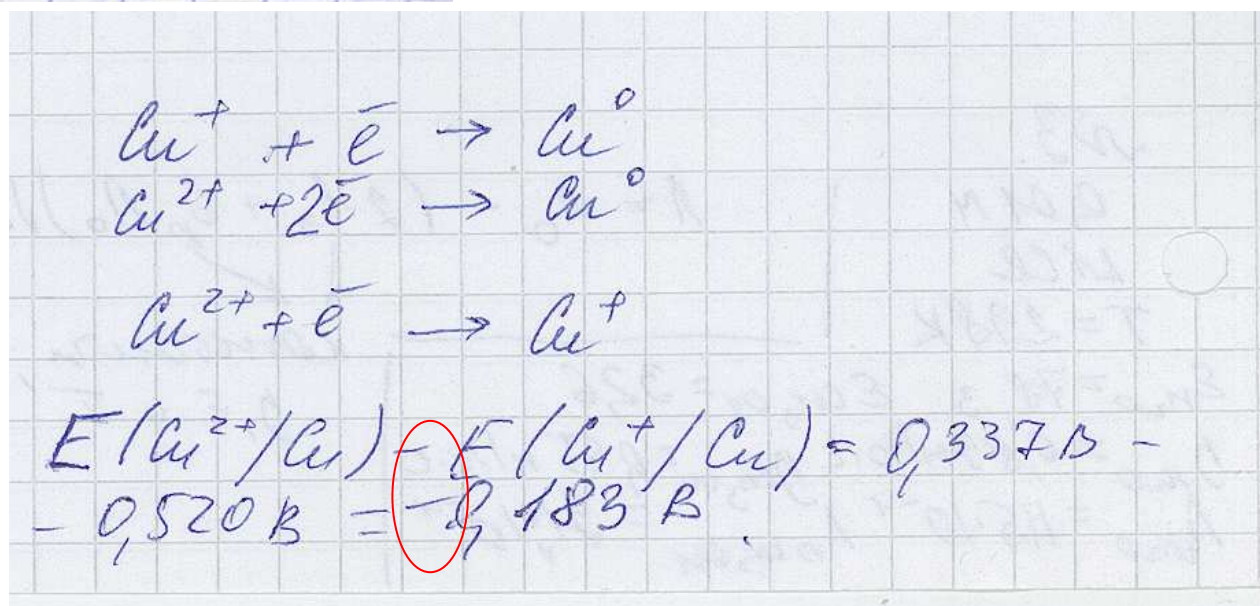 Cu⁺ + ē → Cu⁰
Cu²⁺ + 2ē → Cu⁰
Cu²⁺ + ē → Cu⁺
E(Cu²⁺/Cu) - E(Cu⁺/Cu) = 0,337В -
- 0,520В = -0,183 В.